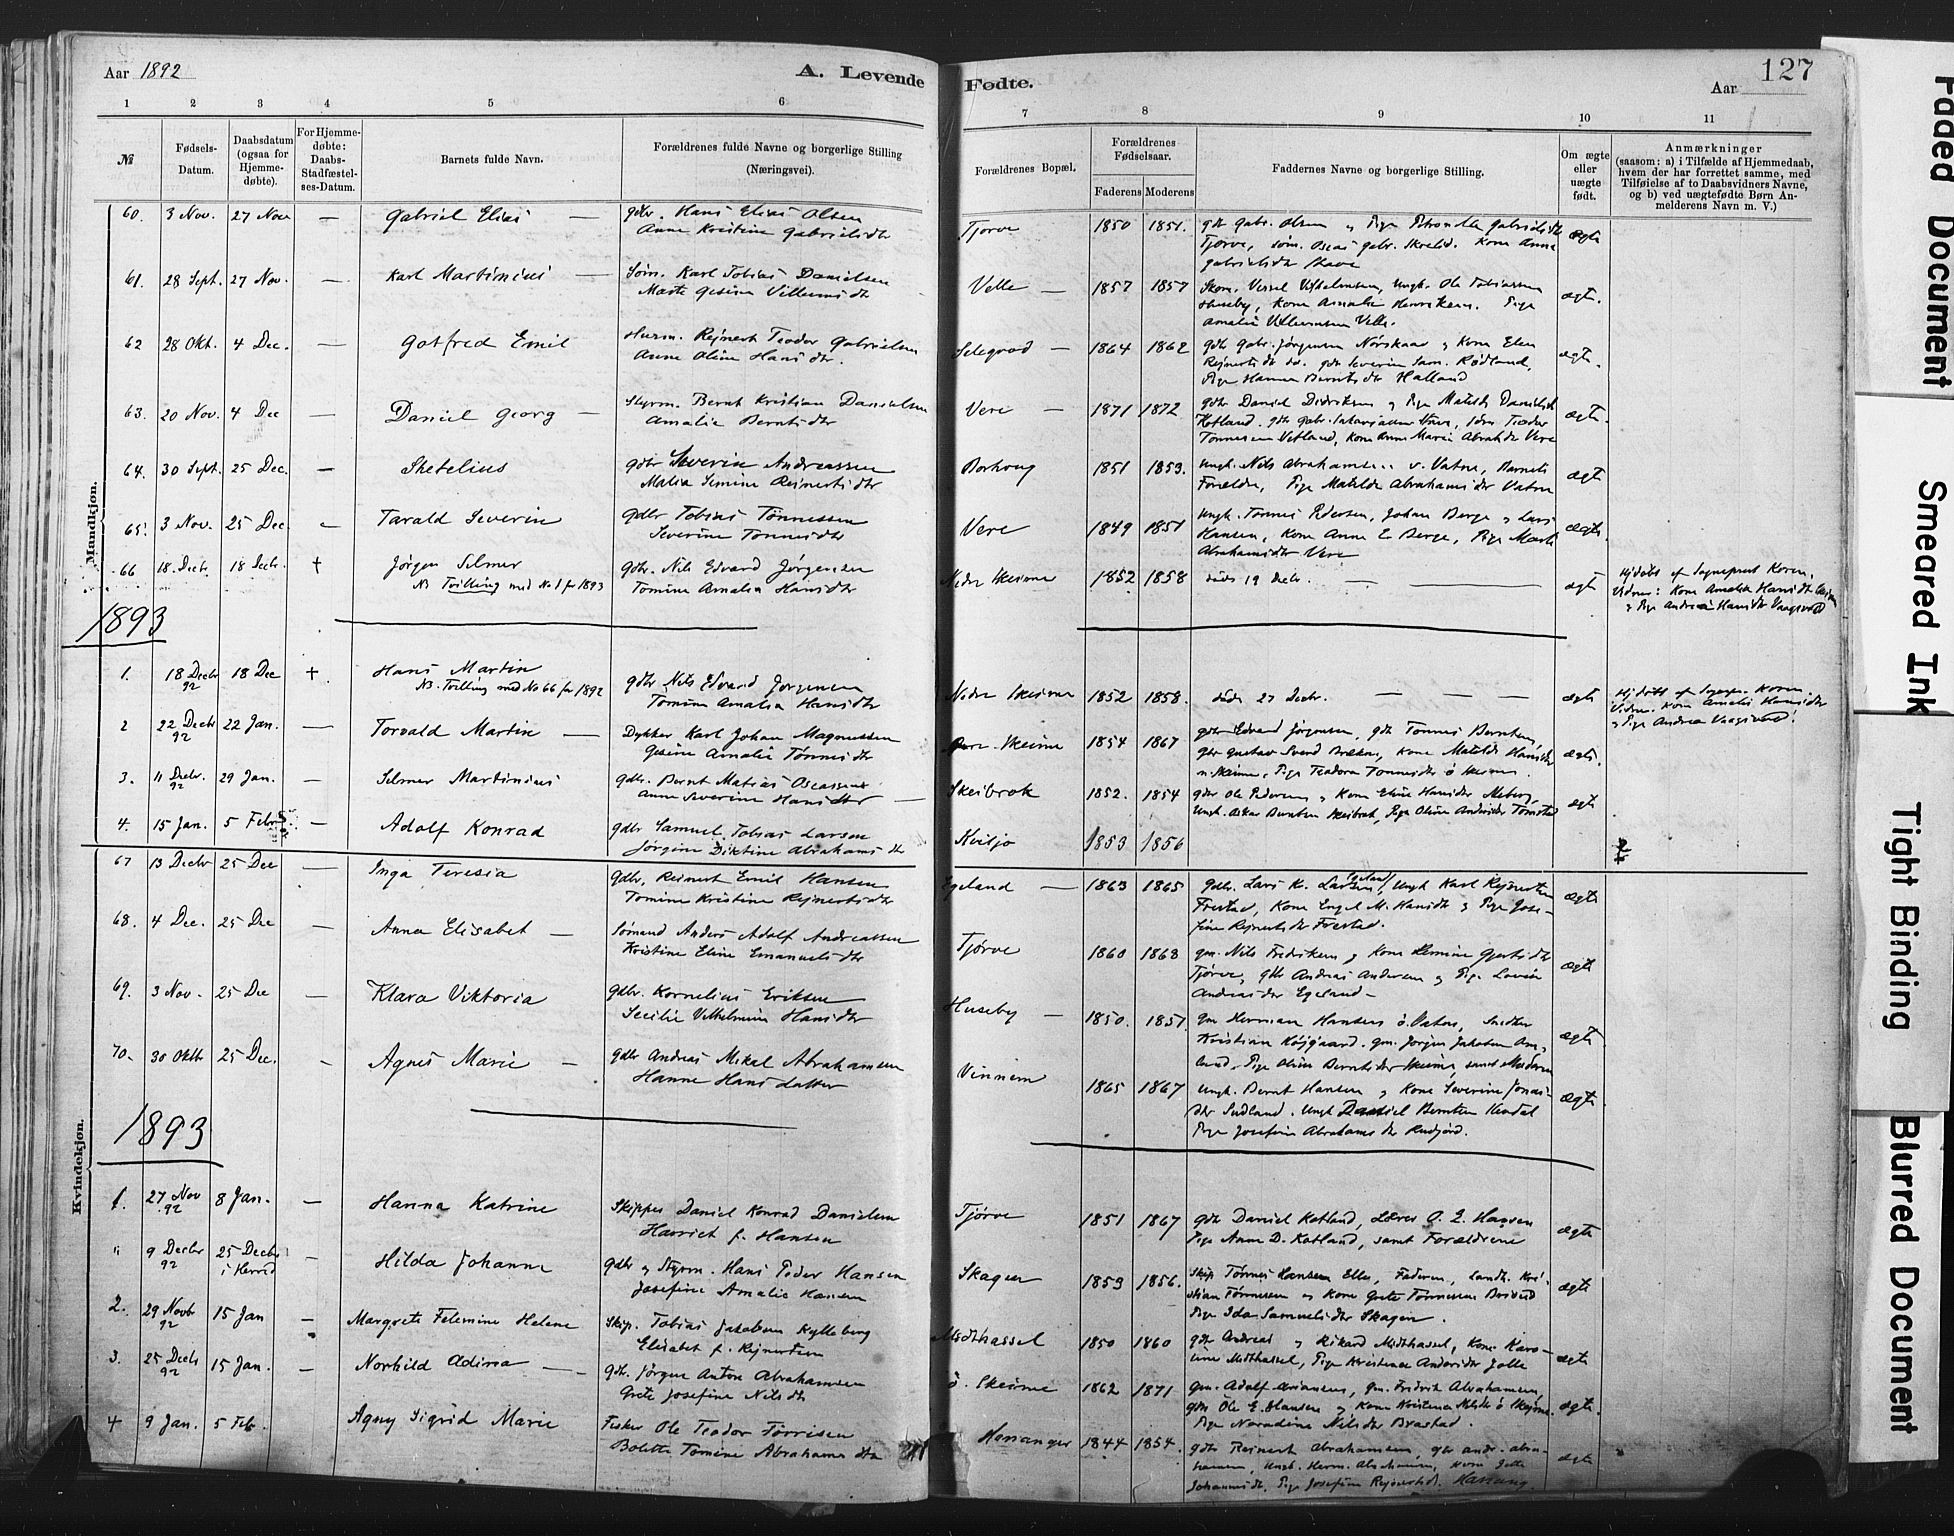 Aar 1892
A. Levende Fødte.
Aar
127
1 2 3 4 5 6 7 8 9 10 11
№
Fødsels-Datum.
Daabsdatum (ogsaa for Hjemme-døbte).
For Hjemme-døbte: Daabs-Stadfæstel-ses-Datum.
Barnets fulde Navn.
Forældrenes fulde Navne og borgerlige Stilling (Næringsvei).
Forældrenes Bopæl.
Forældrenes Fødselsaar.
Faderens Moderens
Faddernes Navne og borgerlige Stilling.
Om ægte eller uægte født.
Anmærkninger (saasom: a) i Tilfælde af Hjemmedaab, hvem der har forrettet samme, med Tilføielse af to Daabsvidners Navne, og b) ved uægtefødte Børn An-melderens Navn m. V.)
Mandkjøn.
60. 3 Nov. 27 Nov — Gabriel Elias — Gdbr. Hans Elias Olsen Tjørve 1850 1851. gdb Gabr. Olsen Pige Petronelle Gabrielsdtr ægte
Anne Kristine Gabrielsdtr Tjørve, søm. Oscar Gabr. Kone Anna
Gabrielsdtr Stave
61. 28 Sept. 27 Nov. — Karl Martinius — Søm. Karl Tobias Danielsen Velle — 1857 1857 Ungk. Ole Tobiassen ægte.
Marte Gesine Villumsdtr Huseby, Kone Amalie Henriksen. Pige
Amalie Villumsen Velle.
62 28 Okt. 4 Dec. — Gotfred Emil Husm. Rejnert Teodor Gabrielsen — 1864 1862 gdb Gabr. Jørgensen Nørskaar og Kone Elen ægte.
Anne Oline Hansdtr. Rejnertsdt do. gdb Severin Sam. Rødland,
Pige Hanna Berntsdtr Halland
63. 20 Nov. 4 Dec — Daniel Georg — Styrm. Bernt Kristian Danielsen Vere — 1871 1872 gdbr Daniel Didriksen og Pige Matilde Danielsdt ægte.
Amalie Berntsdtr Kotland. gdb Gabr. Stave, Teodor
Tønnesen Vetland, Kone Anne Marie Abrahdtr Vere
64. 30 Sept. 25 Dec. — Sketelius Gdbr Severin Andreassen Borhoug 1851 1853. Ungk. Nils Abrahamsen v. Vatne, Barnets ægte
Malia Semine Rejnertsdtr Forældre, Pige Matilde Abrahamsdtr Vatne
65. 3 Nov. 25 Dec. — Tarald Severin Gdbr Tobias Tønnessen Vere 1849 1851 Ungk. Tønnes Pedersen, Johan Berge og Lars ægte.
Severine Tønnesdtr Hansen, Kone Anne E. Berge, Pige Marte
Abrahamsdtr Vere
66 18. Decbr. 18 Decbr. † Jørgen Selmer Gdbr. Nils Edvard Jørgensen Nedre Skeime 1852 1858 døde 19 Decbr. — — ægte Hjdøbt af Sogneprest Koren.
NB. Tvilling med No 1 for 1893 Tomine Amalia Hansdtr Vidner: Kone Amalia Hansdtr
& Pige Andrea Hansdtr Vaagsvold
1893
1. 18 Decbr 92 18 Dec † Hans Martin Gdbr Nils Edvard Jørgensen Nedre Skeime 1852 1858. døde 27 Decbr. — — — ægte Hjdøbt af Sognepr. Koren
NB. Tvilling med No 66 for 1892 Tomine Amalia Hansdtr Vidner: Kone Amalie Hansdtr
og Pige Andrea Vaagsvold.
2 22 Decbr 92 22 Jan. — Torvald Martin — Dykker Karl Johan Magnussen Skeime 1854 1867 gdbr Edvard Jørgensen, gdb Tønnes Berntsen, ægte.
Gesine Amalie Tønnesdtr gbr Gustav Svend Brekne, Kone Matilde Hansdtr
n. Skeime, Pige Teodora Tønnesdtr ø Skeime.
3. 11 Decbr. 92 29 Jan. — Selmer Martinius Gdbr. Bernt Matias Oscassen Skeibrok 1852. 1854 gdbr Ole Pedersen og Kone Eline Hansdtr Meberg, ægte
Anne Severine Hansdtr — Ungk. Berntsen Skeibrok, Pige Oline Andersdtr
4. 15 Jan. 5 Febr. — Adolf Konrad Gdbr Samuel Tobias Larsen Kviljo 1853 1856
Jørgine Diktine Abrahamsdtr
Kvindekjøn.
67 13 Decbr 25 Dec — Inga Teresia Gdbr. Reinert Emil Hansen Egeland — 1863 1865 Gdbr. Lars K. Larsen Egeland, Ungk Karl Rejnertsen ægte
Tomine Kristine Rejnertsdtr Frestad, Kone Engel M. Hansdt og Pige Jose-
fine Rejnertsdtr Frestad.
68. 4 Dec. 25 Dec — Anna Elisabet — Sømand Anders Adolf Andreassen Tjørve 1860 1863 gm. Nils Fredriksen og Kone Semine Gjertsdtr ægte
Kristine Eline Emanuelsdtr Tjørve, gbr Andreas Andersen og Pige Lovise
Andreasdtr Egeland —
69. 3 Nov. 25 Dec — Klara Viktoria Gdbr. Kornelius Eriksen Huseby — 1850. 1851 gm Herman Hansen ø. Vatne, Snedker ægte
Secilie Vilhelmine Hansdtr Kristian Højgaard. gm. Jørgen Jakobsen Am-
lund. Pige Oline Berntsdtr Skeime, samt Moderen
70. 30 Oktbr 25 Dec. — Agnes Marie — Gdbr Andreas Mikal Abrahamsen Vinnem 1865 1867 Ungk. Bernt Hansen og Kone Severine Jonas- ægte.
Hanne Hansdatter dtr Sudland. Ungk Daniel Berntsen
Pige Josefine Abrahamsdtr Rudjord.
1893
1. 27 Nov 92 8 Jan. — Hanna Katrine Skipper Daniel Konrad Danielsen Tjørve 1851 1867 gdb Daniel Kotland, Lærer O. E. Hansen ægte
Harriet f. Hansen Pige Anne D. Kotland, samt Forældrene
" 9 Decbr 92 25 Decbr i Herred — Hilda Johanne Gdbr og Styrm. Hans Peder Hansen Skagen 1853 1856. Skip. Tønnes Hansen Elle, Faderen, Landh. Kri- ægte
Josefine Amalie Hansen stian Tønnessen og Kone Grete Tønnessen
Pige Ida Samuelsdtr Skagen.
2. 29 Novbr 92 15 Jan — Margrete Felemine Helene Skip. Tobias Jakobsen Kylleberg Midthassel 1850 1860 gdb Andreas og Rikard Midthassel, Kone Karo- ægte
Elisabet f. Rejnertsen line Midthassel, Pige Kristense Andersdtr Jolle
3. 25 Decbr 92 15 Jan. — Norhild Adima — gdb. Jørgen Anton Abrahamsen ø. Skeime 1862 1871 gm. Adolf Arianesen, gm. Fredrik Abrahamsen, ægte.
Grete Josefine Nilsdt gdb Ole E. Hansen og Kone Kristense Nilsdtr ø Skejme.
Pige Noradine Nilsdtr Brastad.
4 9 Jan. 5 Feb. — Agny Sigrid Marie Fisker Ole Teodor Tørrisen Hananger 1844 1854. gdbr Reinert Abrahamsen, gbr Andr. Abra- ægte
Bolette Tomine Abrahamsdtr hamsen, Ungk. Herm. Abrahamsen, Kone Jolle
Johannesdt, Pige Josefine Rejnertsd. Hanang.
Faded Document
Smeared Ink
Tight Binding
Blurred Document